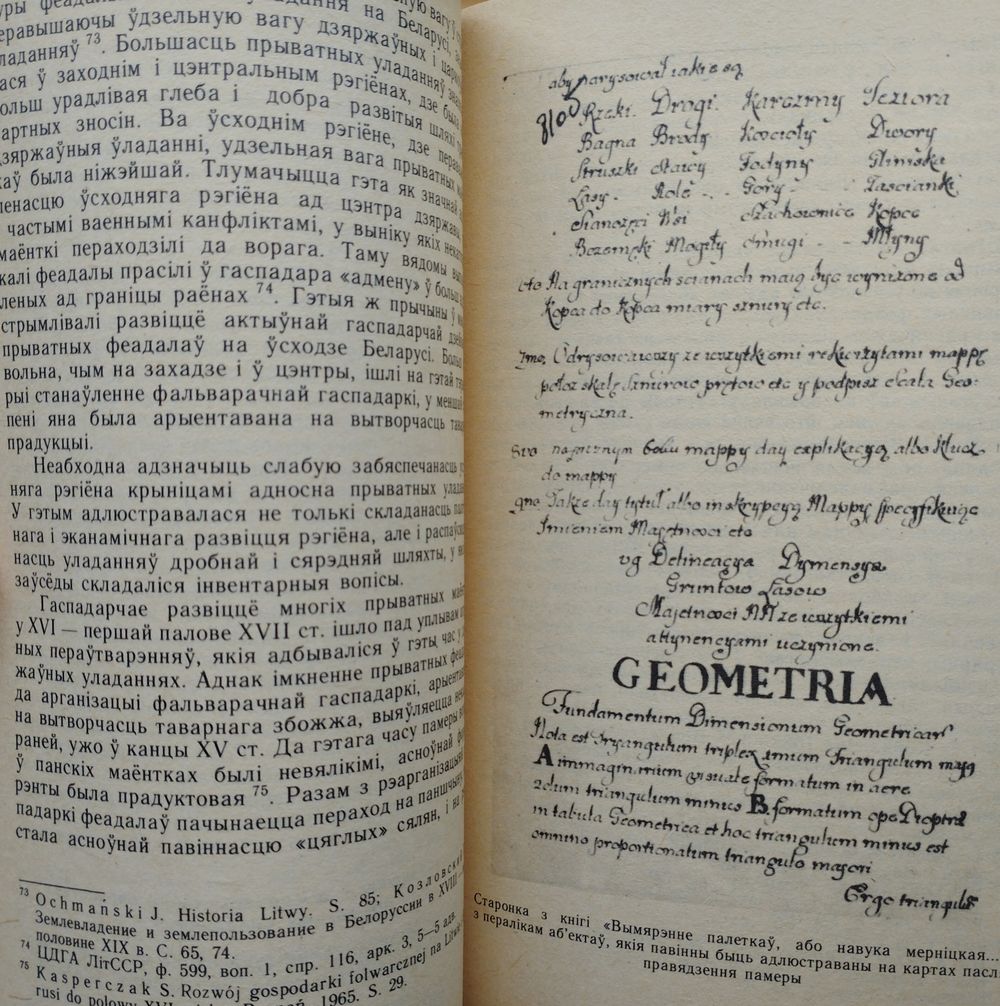 перавышаючы ўдзельную вагу дзяржаўных і
уладанняў ⁷³. Большасць прыватных уладанняў
ў заходнім і цэнтральным рэгіёнах, дзе была
больш урадлівая глеба і добра развітыя шляхі
зносін. Ва ўсходнім рэгіёне, дзе
дзяржаўныя ўладанні, удзельная вага прыватных
была ніжэйшай. Тлумачыцца гэта як значнай
усходняга рэгіёна ад цэнтра дзяржавы,
частымі ваеннымі канфліктамі, у выніку якіх
маёнткі пераходзілі да ворага. Таму вядомы
феадалы прасілі ў гаспадара «адмену» ў больш
ад граніцы раёнах ⁷⁴. Гэтыя ж прычыны ў
стрымлівалі развіццё актыўнай гаспадарчай
прыватных феадалаў на ўсходзе Беларусі. Больш
вольна, чым на захадзе і ў цэнтры, ішлі на гэтай
рыі станаўленне фальварачнай гаспадаркі, у меншай
пені яна была арыентавана на вытворчасць
прадукцыі.
Неабходна адзначыць слабую забяспечанасць
няга рэгіёна крыніцамі адносна прыватных
У гэтым адлюстравалася не толькі складанасць
нага і эканамічнага развіцця рэгіёна, але і
насць уладанняў дробнай і сярэдняй шляхты, у
заўсёды складаліся інвентарныя вопісы.
Гаспадарчае развіццё многіх прыватных
у XVI — першай палове XVII ст. ішло пад уплывам
ных пераўтварэнняў, якія адбываліся ў гэты час у
жаўных уладаннях. Аднак імкненне прыватных
да арганізацыі фальварачнай гаспадаркі,
на вытворчасць таварнага збожжа, выяўляецца
раней, ужо ў канцы XV ст. Да гэтага часу памеры
ў панскіх маёнтках былі невялікімі, асноўнай
рэнты была прадуктовая ⁷⁵. Разам з
падаркі феадалаў пачынаецца пераход на паншчыну,
стала асноўнай павіннасцю «цяглых» сялян, і на
⁷³ Ochmański J. Historia Litwy. S. 85; Козловский
Землевладение и землепользование в Белоруссии в XVIII —
половине XIX в. С. 65, 74.
⁷⁴ ЦДГА ЛітССР, ф. 599, воп. 1, спр. 116, арк. 3, 5—5 адв.
⁷⁵ Kasperczak S. Rozwój gospodarki folwarcznej na Litwie
rusi do połowy XVI 1965. S. 29.
aby narysował iakie są
Rzeki Drogi Karczmy Jeziora
Bagna Brody Kościoły Dwory
Struszki Starcy Jodyny
Lasy Role Gory Zascianki
Sianożęci Wsi Szachownice Kopce
Mogiły Młyny
Na granicznych scianach maią być wyrażone od
Kopca do Kopca miary sznury etc.
Odrysowawszy ze wszytkiemi mappę
położ skalę Sznurow prętow etc y podpisz Skala Geo-
metryczna.
mappy day explikacyą albo Klucz
do mappy
Także day tytuł albo inskrypcyą Mappy specyfikuiąc
Imieniem Maiętności etc
vg Delineacya Dymensya
Gruntow Lasow
Maiętności NN ze wszytkiemi
attynencyami uczynione.
GEOMETRIA
Fundamentum Dimensionum Geometricar
Nota est Tryangulum triplex imum Triangulum
A immaginarium visuale formatum in aere
2dum triangulum minus B. formatum ope Dioptrae
in tabula Geometrica et hoc triangulum minus est
omnino proportionatum triangulo maiori
Ergo triangulus
Старонка з кнігі «Вымярэнне палеткаў, або навука мерніцкая...
з пералікам аб'ектаў, якія павінны быць адлюстраваны на картах
правядзення памеры